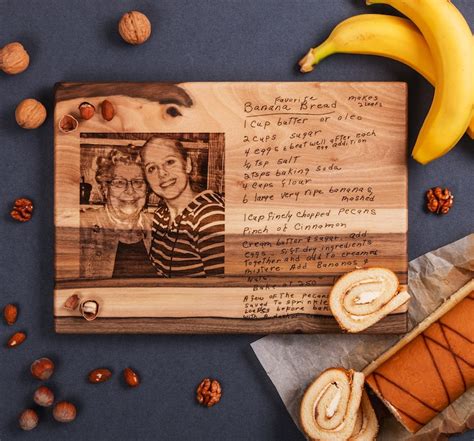 Favorite
Banana Bread makes
2 loaves
1 Cup butter or oleo
2 cups sugar
4 eggs & beat well after each
addition
½ tsp salt
2 tsps baking soda
4 cups flour
6 large very ripe bananas
mashed
1 cup finely chopped pecans
Pinch of Cinnamon
Cream butter & sugar, add
eggs. Sift dry ingredients
together and add to creamed
mixture. Add Bananas &
nuts
Bake at 250
A few of the pecans
saved to sprinkle
Loaves before
with A